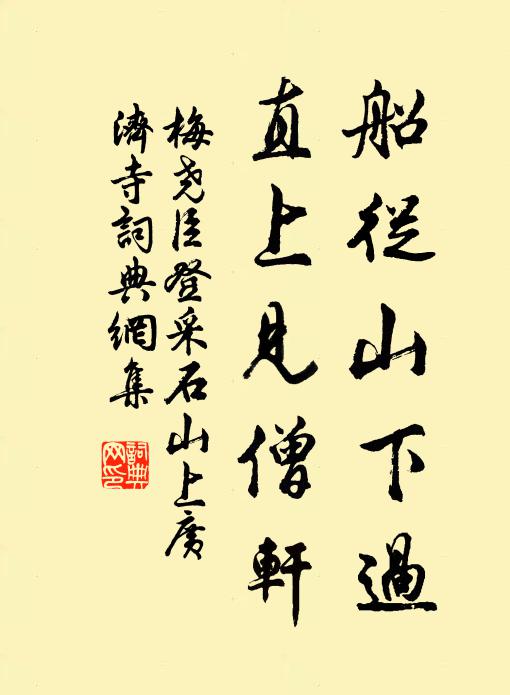 船從山下過
直上見僧軒
梅尧臣登采石山上廣
濟寺詞典網集
詞典
网印